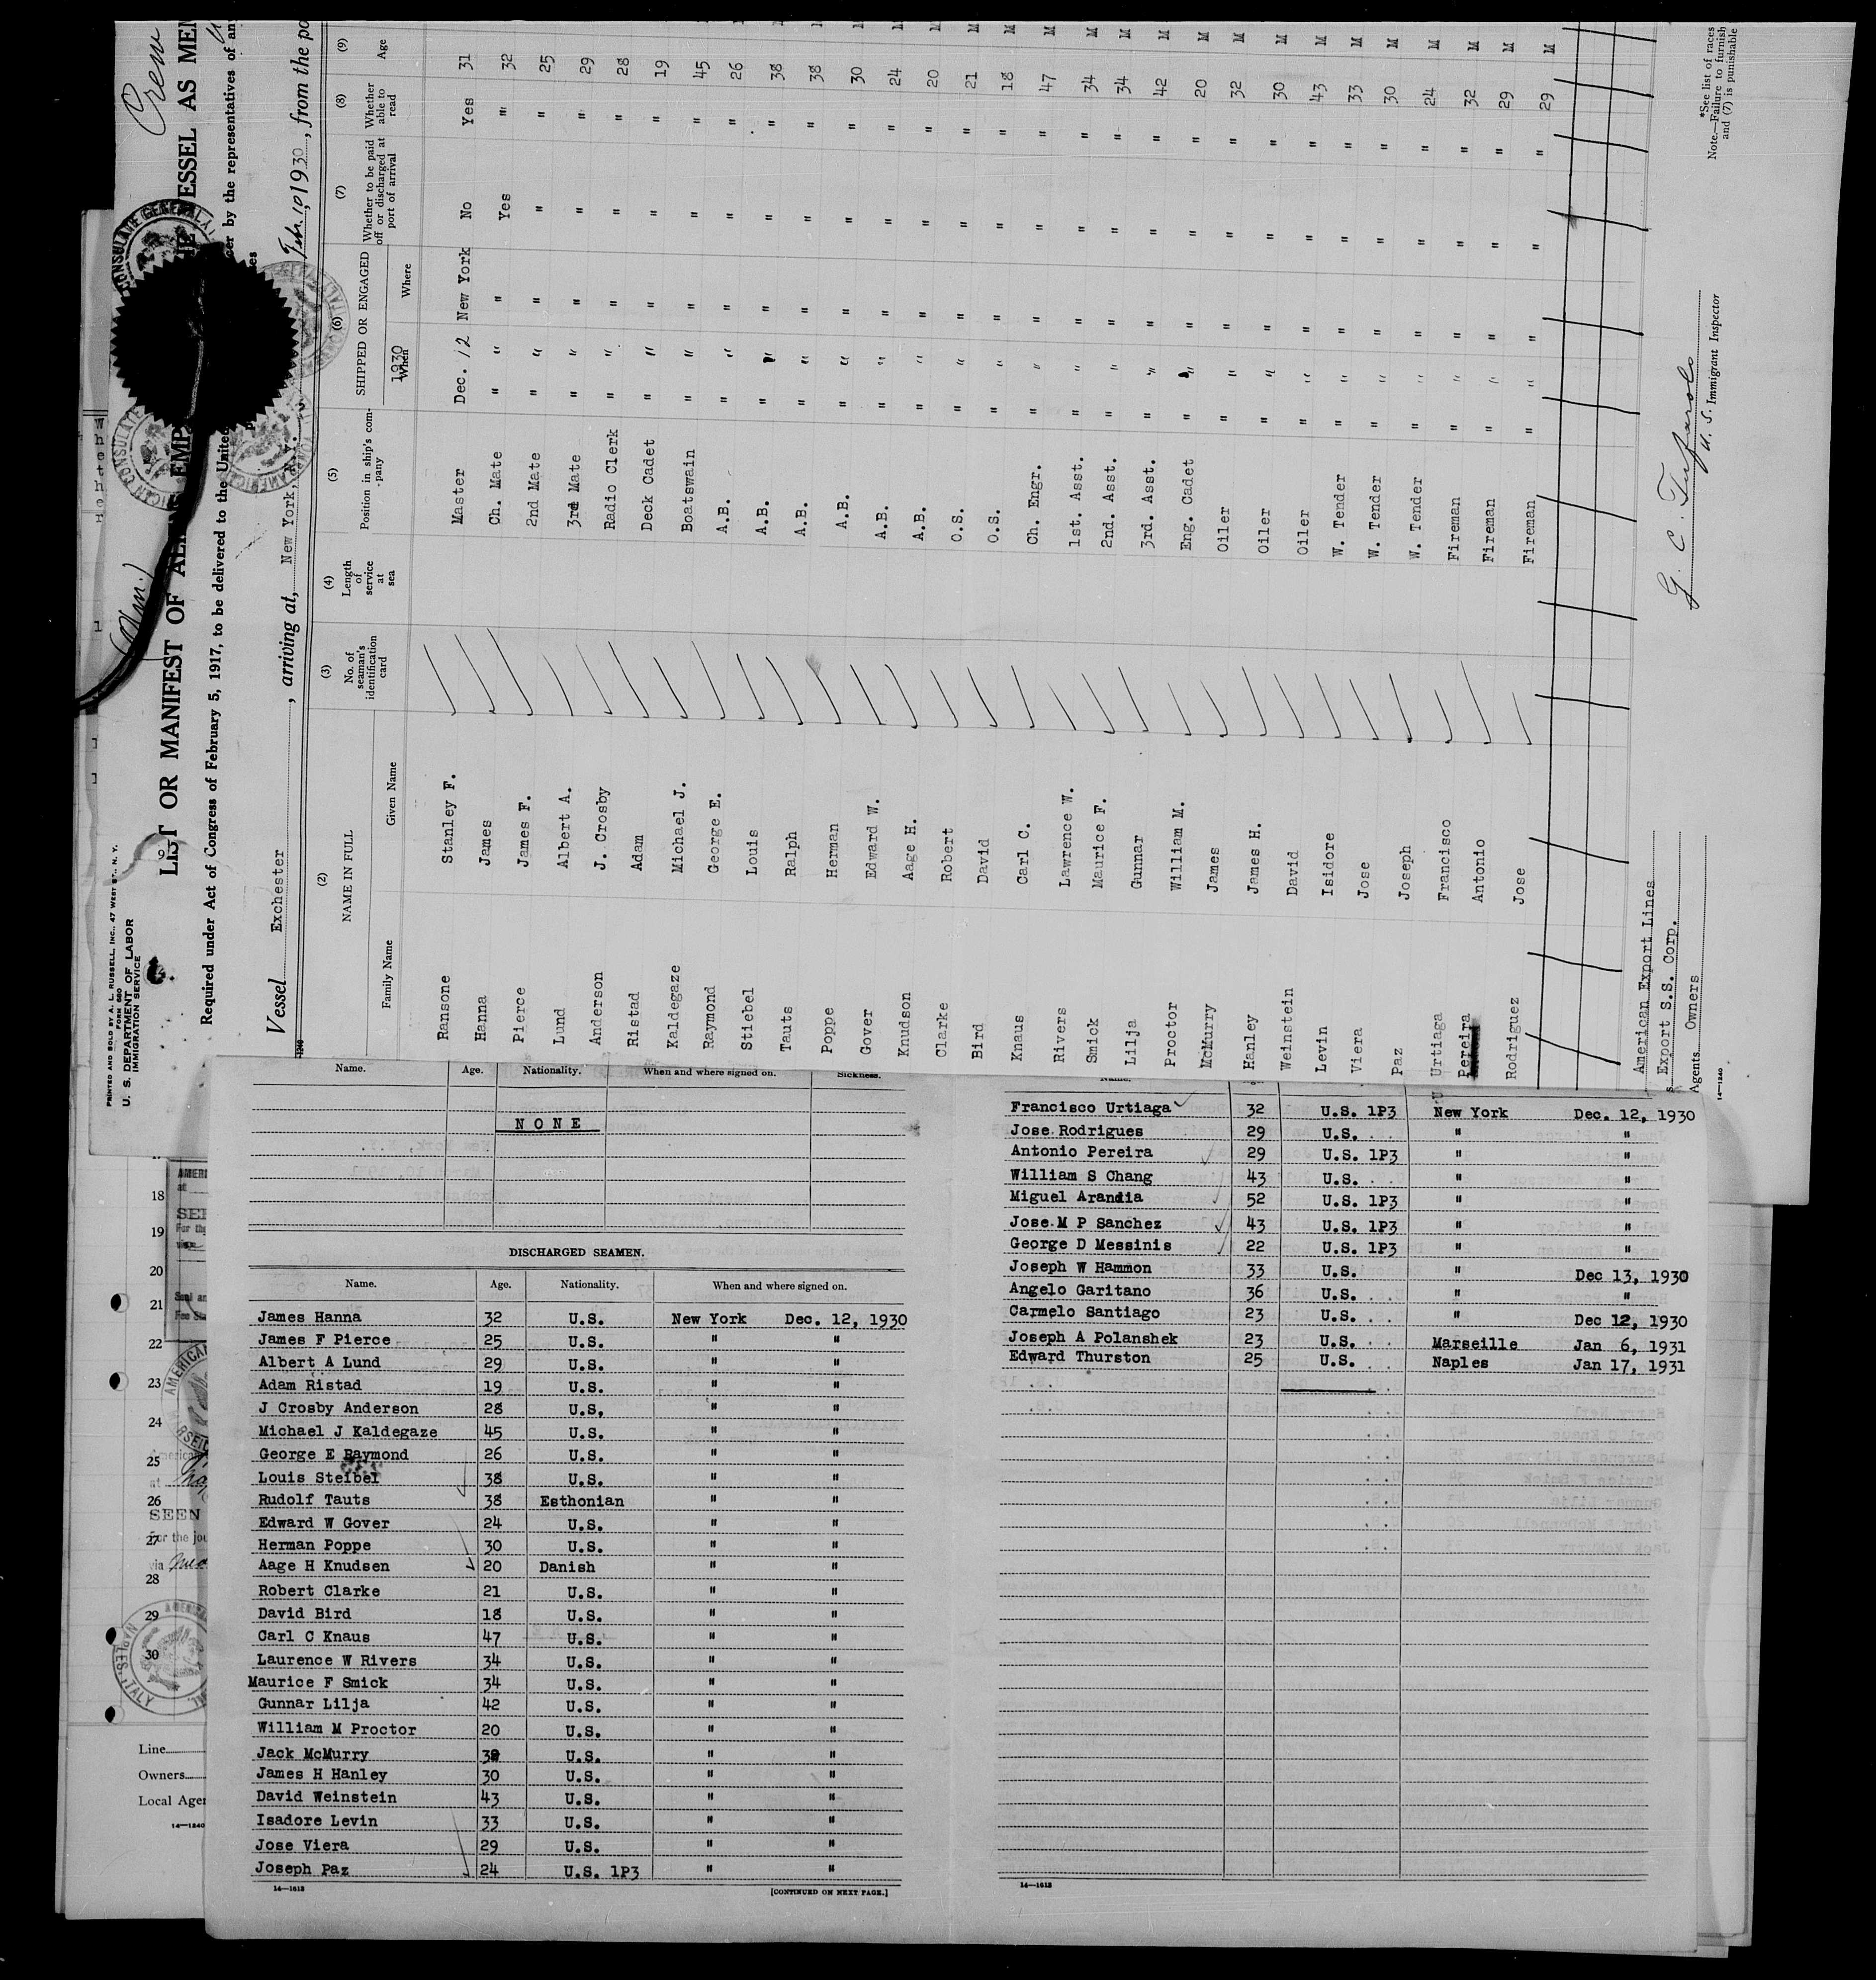 Crew
(Am.)
PRINTED AND SOLD BY A. L. RUSSELL, INC., 47 WEST ST., N. Y.
FORM 680
U. S. DEPARTMENT OF LABOR
IMMIGRATION SERVICE
LIST OR MANIFEST OF ESSEL AS MEM
Required under Act of Congress of February 5, 1917, to be delivered to the United by the representatives of any
Vessel Exchester , arriving at, New York, N.Y. Feb. 10 1930, from the po
(2) (3) (4) (5) (6) (7) (8) (9)
NAME IN FULL No. of seaman's identification card Length of service at sea Position in ship's company SHIPPED OR ENGAGED Whether to be paid off or discharged at port of arrival Whether able to read Age
Family Name Given Name 1930 When Where
Ransone Stanley F. Master Dec. 12 New York No Yes 31 M
Hanna James Ch. Mate " " " Yes " 32
Pierce James F. 2nd Mate " " " " " 25
Lund Albert A. 3rd Mate " " " " " 29
Anderson J. Crosby Radio Clerk " " " " " 28
Ristad Adam Deck Cadet " " " " " 19
Kaldegaze Michael J. Boatswain " " " " " 45
Raymond George E. A.B. " " " " " 26
Stiebel Louis A.B. " " " " " 38
Tauts Ralph A.B. " " " " " 38
Poppe Herman A.B. " " " " " 30
Gover Edward W. A.B. " " " " " 24
Knudson Aage H. A.B. " " " " " 20
Clarke Robert O.S. " " " " " 21 M
Bird David O.S. " " " " " 18 M
Knaus Carl C. Ch. Engr. " " " " " 47 M
Rivers Lawrence W. 1st. Asst. " " " " " 34 M
Smick Maurice F. 2nd. Asst. " " " " " 34 M
Lilja Gunnar 3rd. Asst. " " " " " 42 M
Proctor William M. Eng. Cadet " " " " " 20 M
McMurry James Oiler " " " " " 32 M
Hanley James H. Oiler " " " " " 30 M
Weinstein David Oiler " " " " " 43 M
Levin Isidore W. Tender " " " " " 33 M
Viera Jose W. Tender " " " " " 30 M
Paz Joseph W. Tender " " " " " 24 M
Urtiaga Francisco Fireman " " " " " 32 M
Pereira Antonio Fireman " " " " " 29 M
Rodriguez Jose Fireman " " " " " 29 M
American Export Lines
Export S.S. Corp.
Agents Owners
14—1240
U. S. Immigrant Inspector
*See list of races
Note.—Failure to furnish
and (7) is punishable
Name. Age. Nationality. When and where signed on. Sickness.
NONE
DISCHARGED SEAMEN.
Name. Age. Nationality. When and where signed on.
James Hanna 32 U.S. New York Dec. 12, 1930
James F Pierce 25 U.S. " "
Albert A Lund 29 U.S. " "
Adam Ristad 19 U.S. " "
J Crosby Anderson 28 U.S. " "
Michael J Kaldegaze 45 U.S. " "
George E Raymond 26 U.S. " "
Louis Steibel 38 U.S. " "
Rudolf Tauts 38 Esthonian " "
Edward W Gover 24 U.S. " "
Herman Poppe 30 U.S. " "
Aage H Knudsen 20 Danish " "
Robert Clarke 21 U.S. " "
David Bird 18 U.S. " "
Carl C Knaus 47 U.S. " "
Laurence W Rivers 34 U.S. " "
Maurice F Smick 34 U.S. " "
Gunnar Lilja 42 U.S. " "
William M Proctor 20 U.S. " "
Jack McMurry U.S. " "
James H Hanley 30 U.S. " "
David Weinstein 43 U.S. " "
Isadore Levin 33 U.S. " "
Jose Viera 29 U.S. " "
Joseph Paz 24 U.S. 1P3 " "
14—1613 [CONTINUED ON NEXT PAGE.]
Francisco Urtiaga 32 U.S. 1P3 New York Dec. 12, 1930
Jose Rodrigues 29 U.S. " "
Antonio Pereira 29 U.S. 1P3 " "
William S Chang 43 U.S. " "
Miguel Arandia 52 U.S. 1P3 " "
Jose M P Sanchez 43 U.S. 1P3 " "
George D Messinis 22 U.S. 1P3 " "
Joseph W Hammon 33 U.S. " Dec 13, 1930
Angelo Garitano 36 U.S. " "
Carmelo Santiago 23 U.S. " Dec 12, 1930
Joseph A Polanshek 23 U.S. Marseille Jan 6, 1931
Edward Thurston 25 U.S. Naples Jan 17, 1931
14—1613
18
19
20
21
22
23
24
25
26
SEEN
27
For the jou
via
28
29
30
NAPLES, ITALY
Line
Owners
Local Agen
14—1240